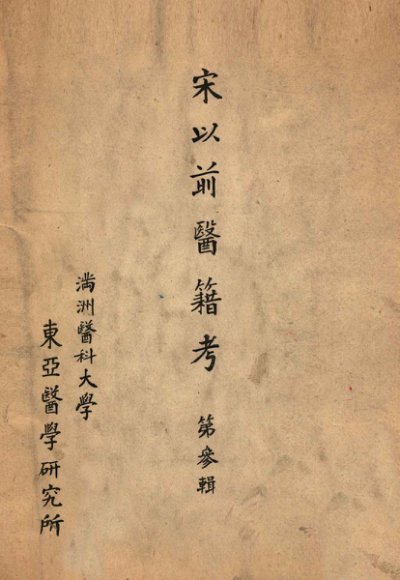 宋以前醫籍考 第參輯
満洲醫科大學
東亞醫學研究所